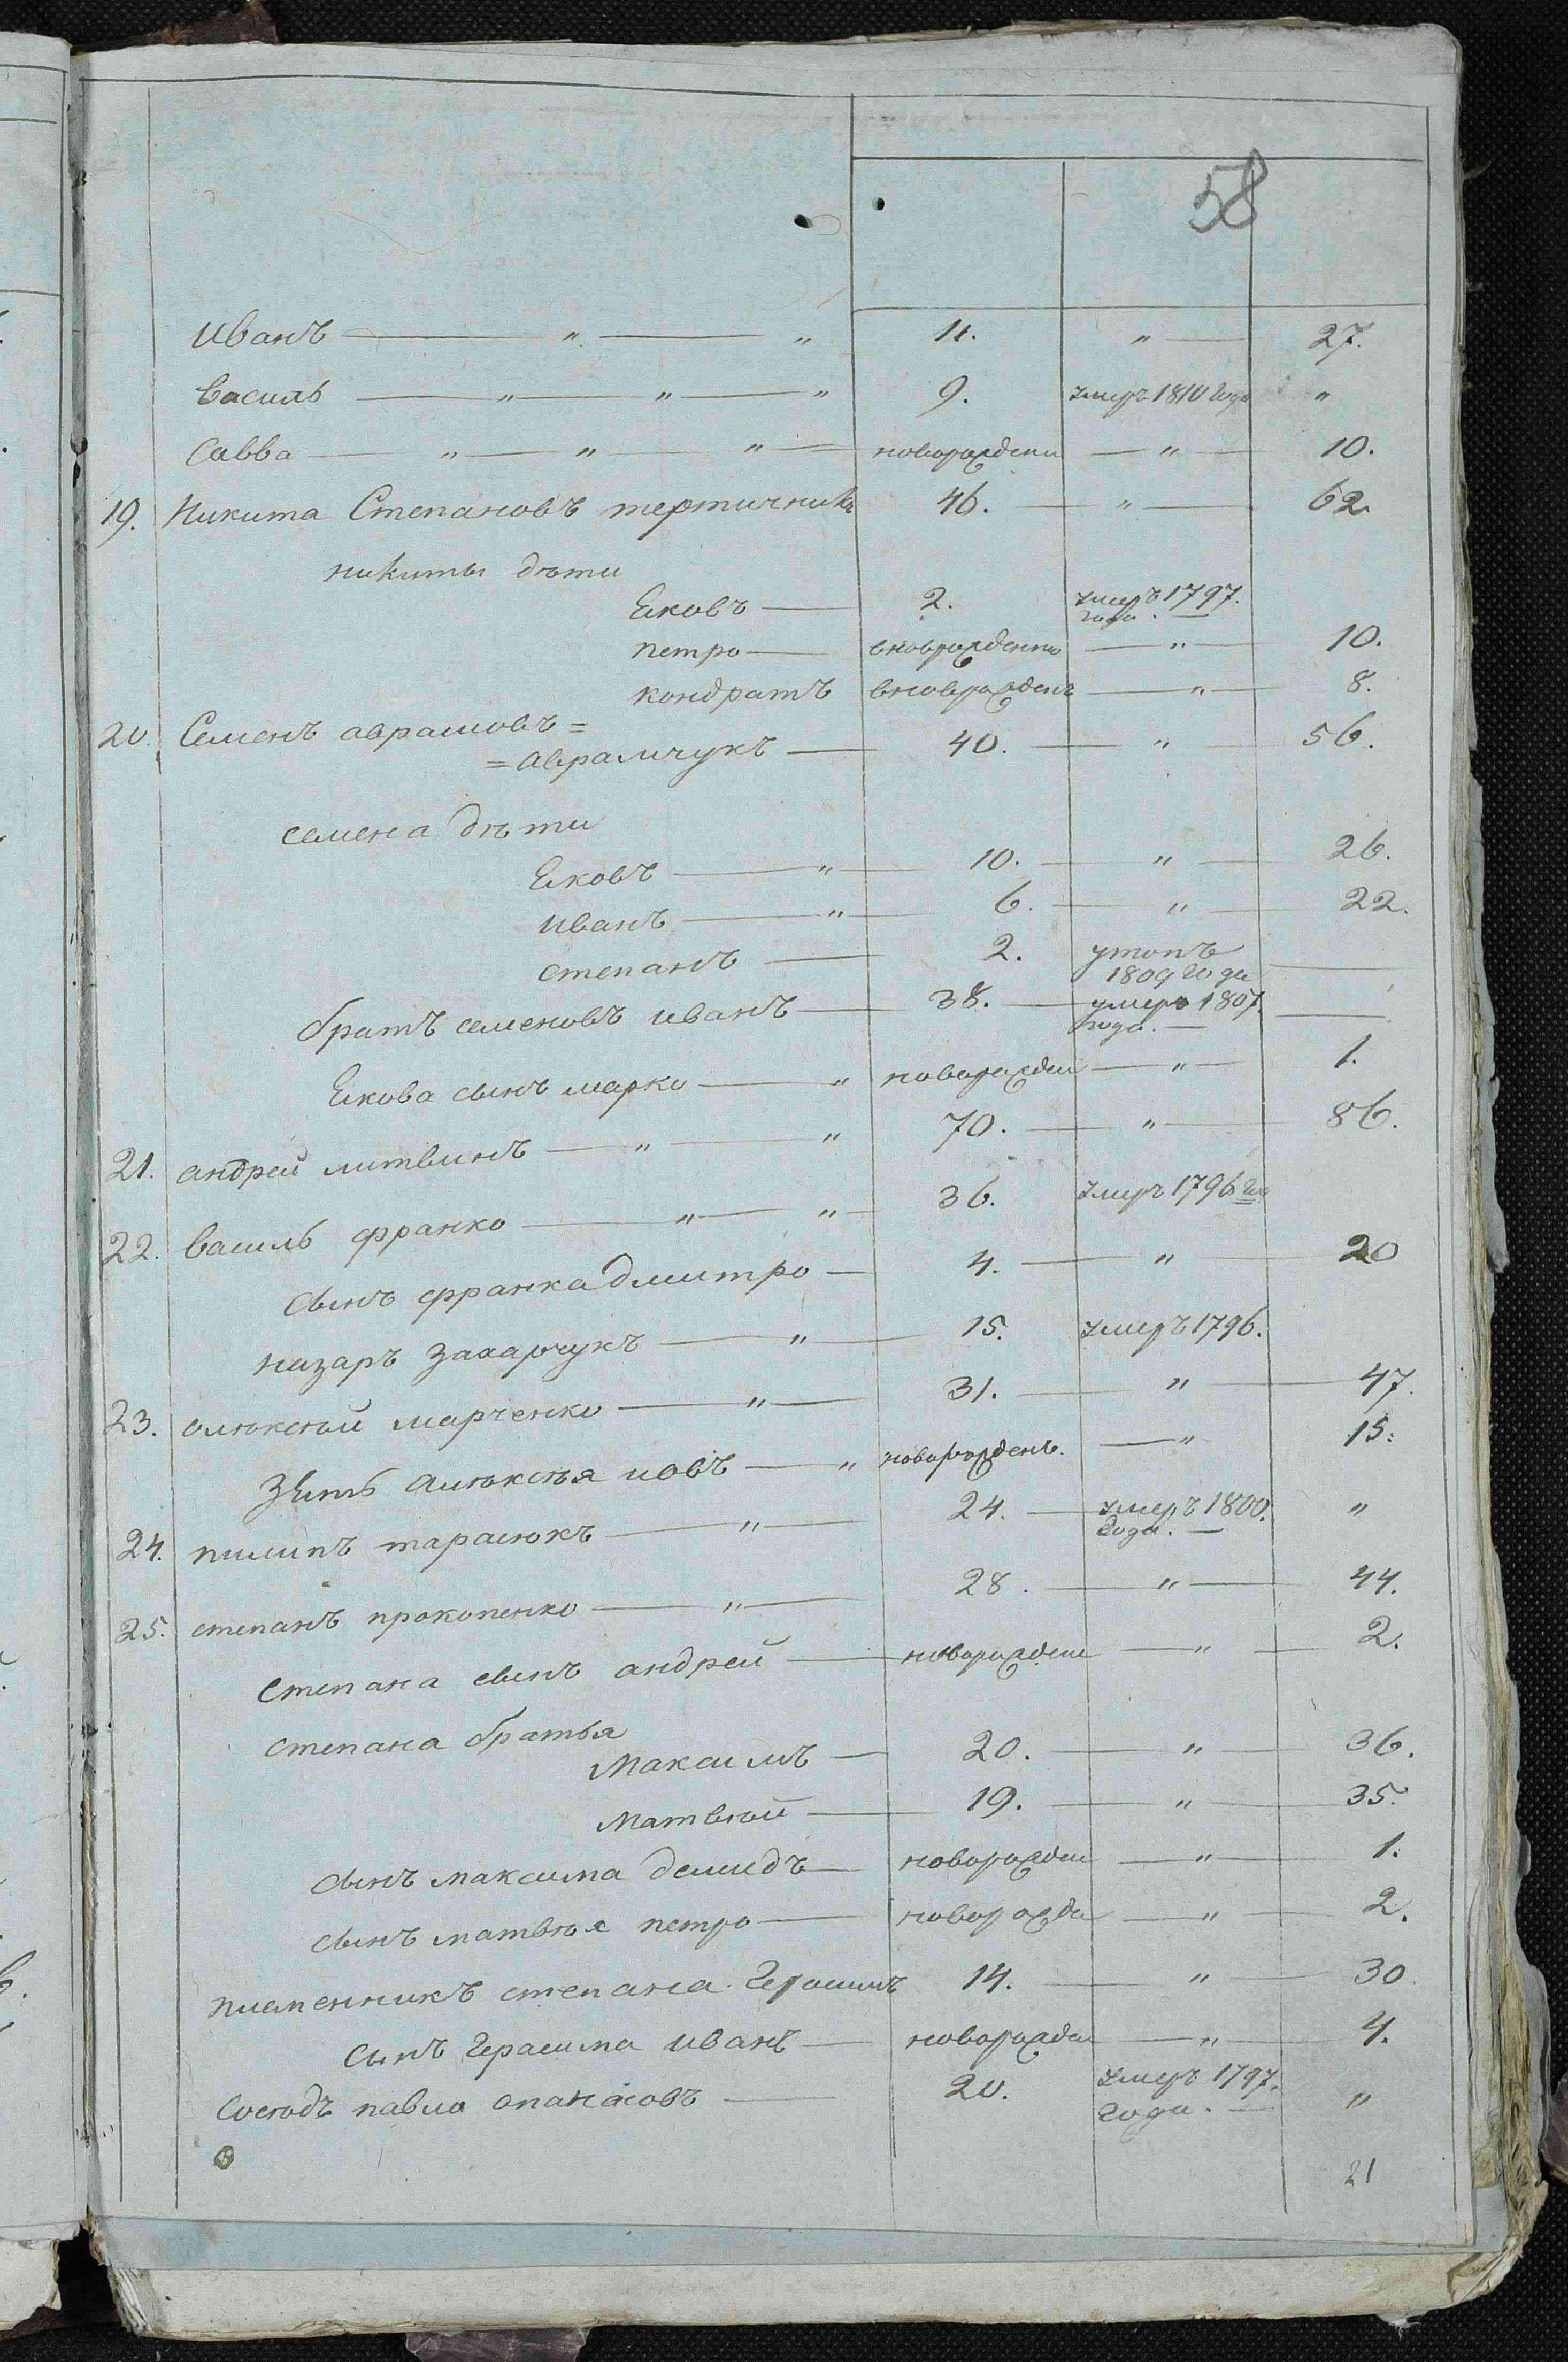 58
Иванъ — " — " 11. " — 27.
Василь — " — " — " 9. умеръ 1810 года "
Савва — " — " — " — новорожденъ — " — 10.
19. Никита Степановъ тертичникъ 46. — " — 62.
никиты дѣти
Яковъ — 2. умеръ 1797.
года. —
петро — вноврожденно — " — 10.
кондратъ вноврожденъ — " — 8.
20. Семенъ аврамовъ =
= аврамчукъ — 40. — " — 56.
семена дѣти
Яковъ — " — 10. — " — 26.
иванъ — " — 6. — " — 22.
степанъ — 2. утопъ
1809 года —
братъ семеновъ иванъ — 38. — умеръ 1807.
года. — —
Якова сынъ марко — " новорожден — " — 1.
21. андрей литвинъ — " — " 70. — " — 86.
22. василь франко — " — " — 36. умеръ 1796 го
сынъ франка дмитро — 4. — " — 20
назаръ захарчукъ — " — 15. умеръ 1796.
23. олѣксѣй марченко — " — 31. — " — 47.
зять алѣксѣя іовъ — " новорожденъ. — " 15.
24. пилипъ тарасюкъ — " — 24. — умеръ 1800. "
года. —
25. степанъ прокопенко — " — 28. — " — 44.
степана сынъ андрей — новорожден — " — 2.
степана братья
Максимъ — 20. — " — 36.
Матвѣй — 19. — " — 35.
сынъ максима демидъ — новорожден — " — 1.
сынъ матвѣя петро — новорожде — " — 2.
племенникъ степана Герасимъ 14. — " — 30.
сынъ Герасима иванъ — новорожден — " — 4.
сосѣдъ павло опанасовъ — 20. умеръ 1797. "
года. —
21